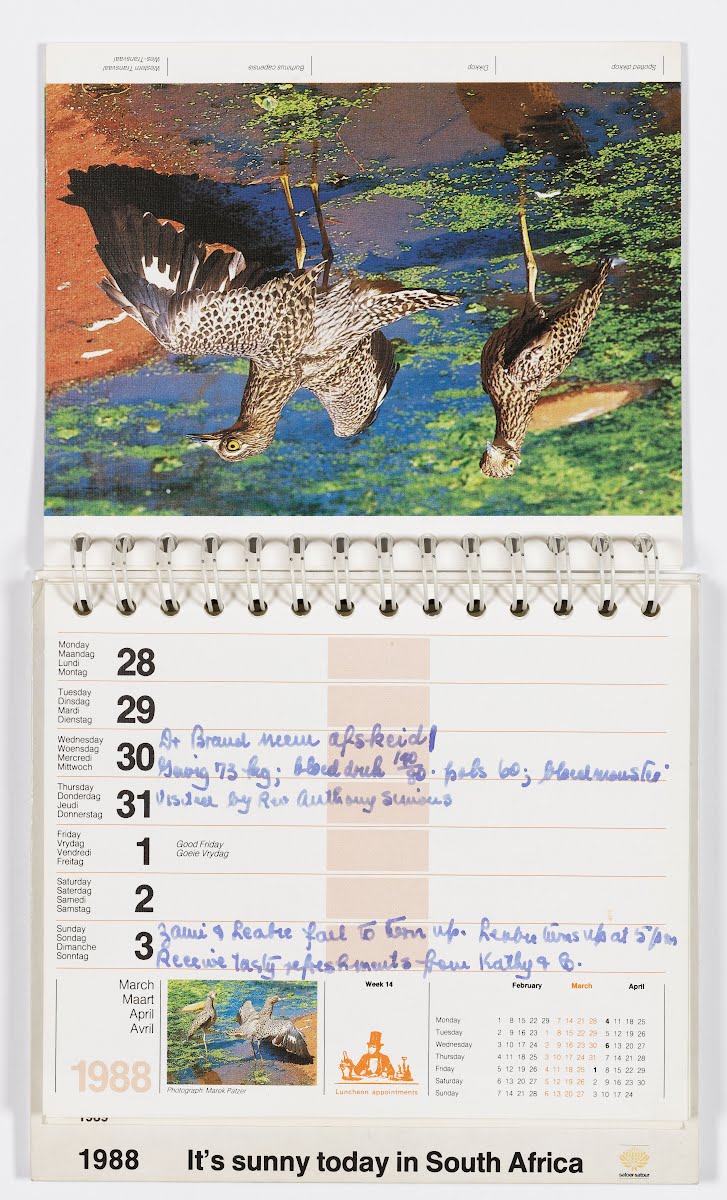 Western Transvaal
Wes-Transvaal
Burhinus capensis
Dikkop
Spotted dikkop
Monday
Maandag
Lundi
Montag
28
Tuesday
Dinsdag
Mardi
Dienstag
29
Wednesday
Woensdag
Mercredi
Mittwoch
30
Dr Brand neem afskeid!
Gewig 73 kg; bloeddruk 140/80. pols 60; bloedmonster
Thursday
Donderdag
Jeudi
Donnerstag
31
Visited by Rev Anthony Simons
Friday
Vrydag
Vendredi
Freitag
1
Good Friday
Goeie Vrydag
Saturday
Saterdag
Samedi
Samstag
2
Sunday
Sondag
Dimanche
Sonntag
3
Zami & fail to turn up. turns up at 5pm
Receive tasty refreshments from Kathy &
March
Maart
April
Avril
1988
Photograph: Marek Patzer
Week 14
Luncheon appointments
February March April
Monday 1 8 15 22 29 7 14 21 28 4 11 18 25
Tuesday 2 9 16 23 1 8 15 22 29 5 12 19 26
Wednesday 3 10 17 24 2 9 16 23 30 6 13 20 27
Thursday 4 11 18 25 3 10 17 24 31 7 14 21 28
Friday 5 12 19 26 4 11 18 25 1 8 15 22 29
Saturday 6 13 20 27 5 12 19 26 2 9 16 23 30
Sunday 7 14 21 28 6 13 20 27 3 10 17 24
1989
1988 It's sunny today in South Africa
satoer·satour